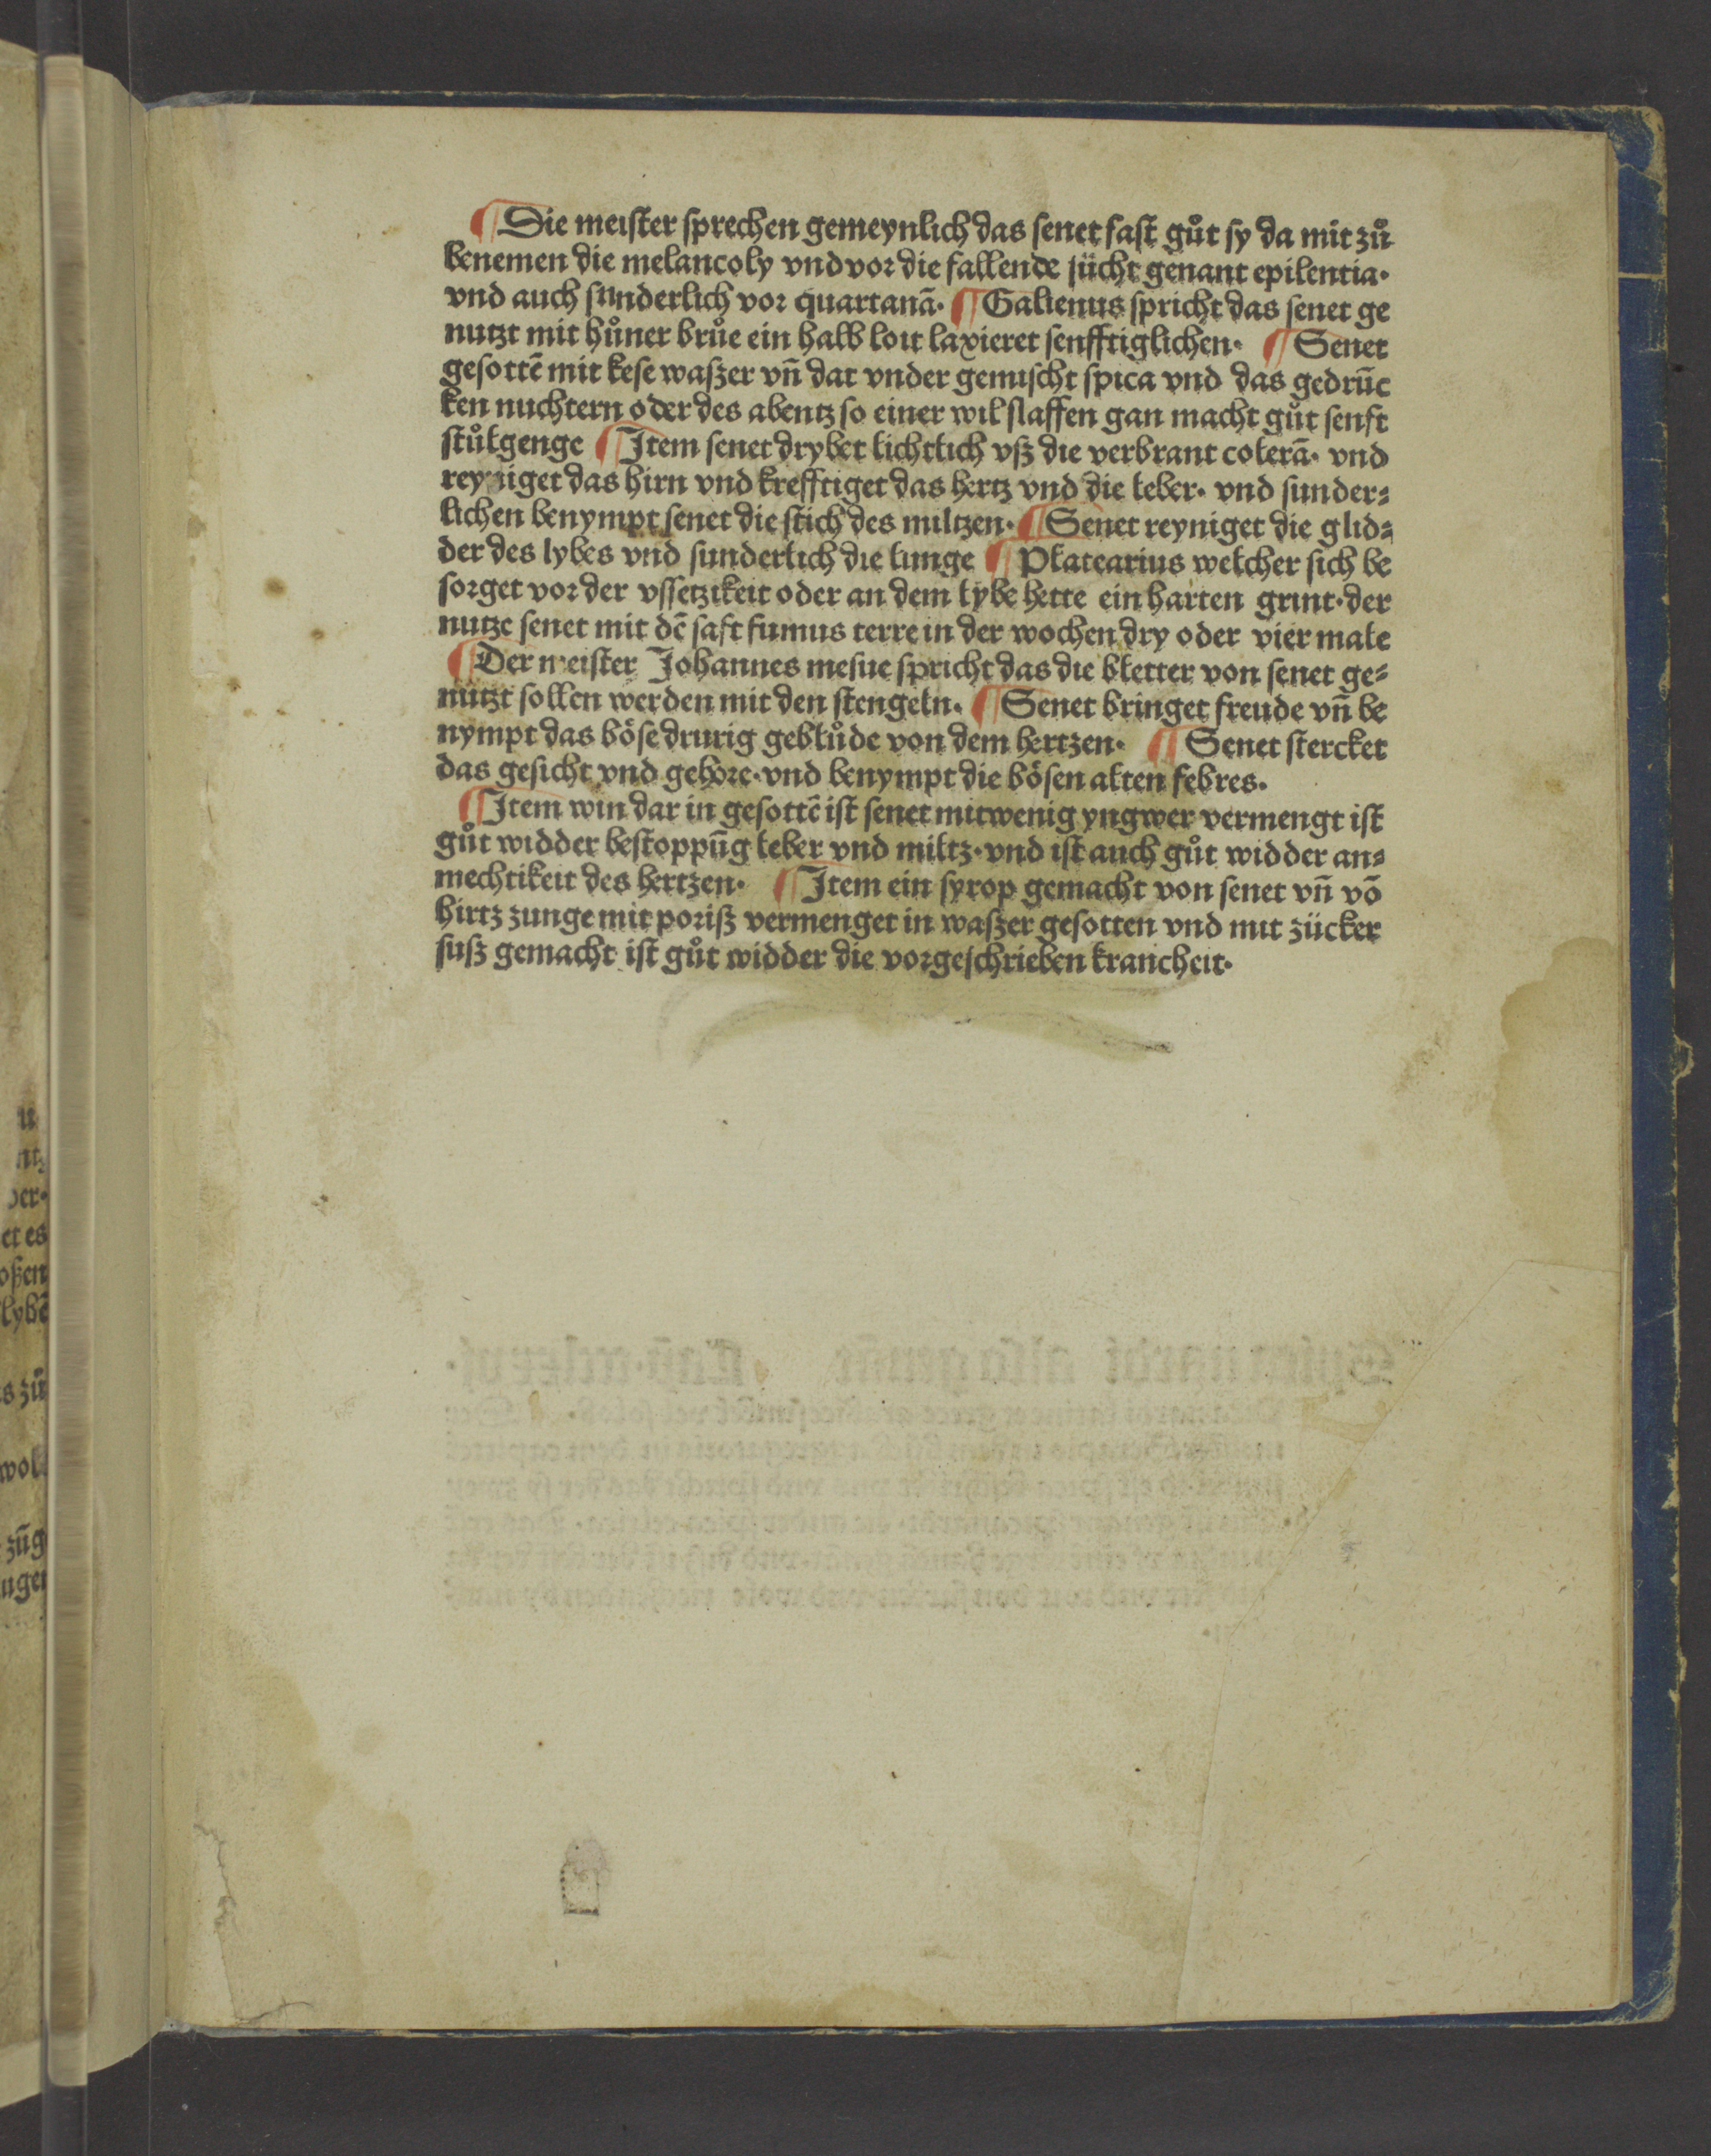 ¶ Die meister sprechen gemeynlich das senet fast gůt sy da mit zů
benemen die melancoly vnd vor die fallende sücht genant epilentia·
vnd auch sunderlich vor quartanā· ¶ Galienus spricht das senet ge
nutzt mit hůner brůe ein halb loit laxieret senfftiglichen· ¶ Senet
gesottē mit kese waßer vñ dar vnder gemischt spica vnd das gedrūc
ken nuchtern oder des abentz so einer wil slaffen gan macht gůt senft
stůlgenge ¶ Item senet drybet lichtlich vß die verbrant colerā· vnd
reyniget das hirn vnd krefftiget das hertz vnd die leber· vnd sunder⸗
lichen benympt senet die stich des miltzen· ¶ Senet reyniget die glid⸗
der des lybes vnd sunderlich die lunge ¶ Platearius welcher sich be
sorget vor der vssetzikeit oder an dem lybe hette ein harten grint· der
nutze senet mit dē saft fumus terre in der wochen dry oder vier male
¶ Der meister Johannes mesue spricht das die bletter von senet ge⸗
nützt sollen werden mit den stengeln· ¶ Senet bringet freude vñ be
nympt das böse drurig geblůde von dem hertzen· ¶ Senet stercket
das gesicht vnd gehore· vnd benympt die bösen alten febres.
¶ Item win dar in gesottē ist senet mit wenig yngwer vermengt ist
gůt widder bestoppūg leber vnd miltz· vnd ist auch gůt widder an⸗
mechtikeit des hertzen· ¶ Item ein syrop gemacht von senet vñ vō
hirtz zunge mit poriß vermenget in waßer gesotten vnd mit zücker
suß gemacht ist gůt widder die vorgeschrieben krancheit·